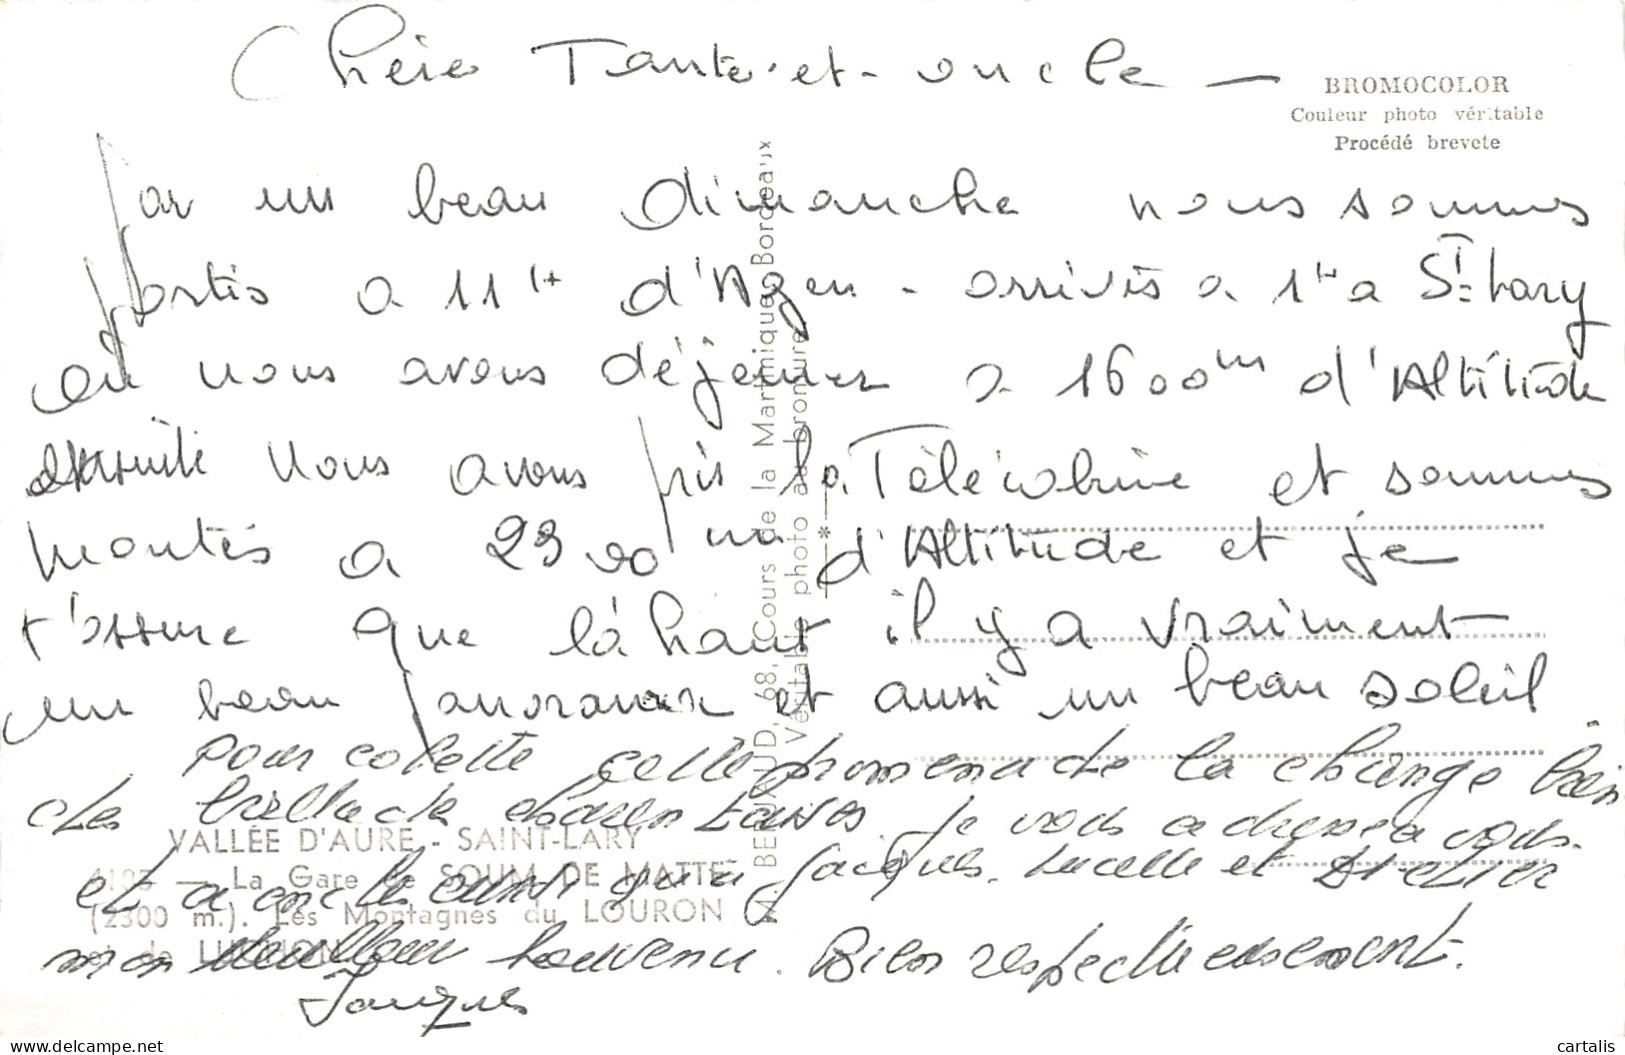 Chère Tante et oncle —
BROMOCOLOR
Couleur photo véritable
Procédé breveté
Par un beau dimanche nous sommes
partis a 11H d'Agen - arrivés a 1H a St Lary
où nous avons déjeuner a 1600m d'Altitude
ensuite nous avons pris la Télécabine et sommes
montés a 2300 m d'Altitude et je
t'assure que là haut il y a vraiment
un beau panorama et aussi un beau soleil
pour colette cette promenade la change bien
des je vous adresse a vous
et a ainsi qu'a Jacques, Lucette et Didier
mon meilleur souvenir. Bien respectueusement.
Jacques
VALLÉE D'AURE - SAINT-LARY
— La Gare de SOUM DE MATTE
(2300 m.). Les Montagnes du LOURON
et de LUCHON
68, Cours de la Martinique, Bordeaux
Véritable photo au bromure
cartalis